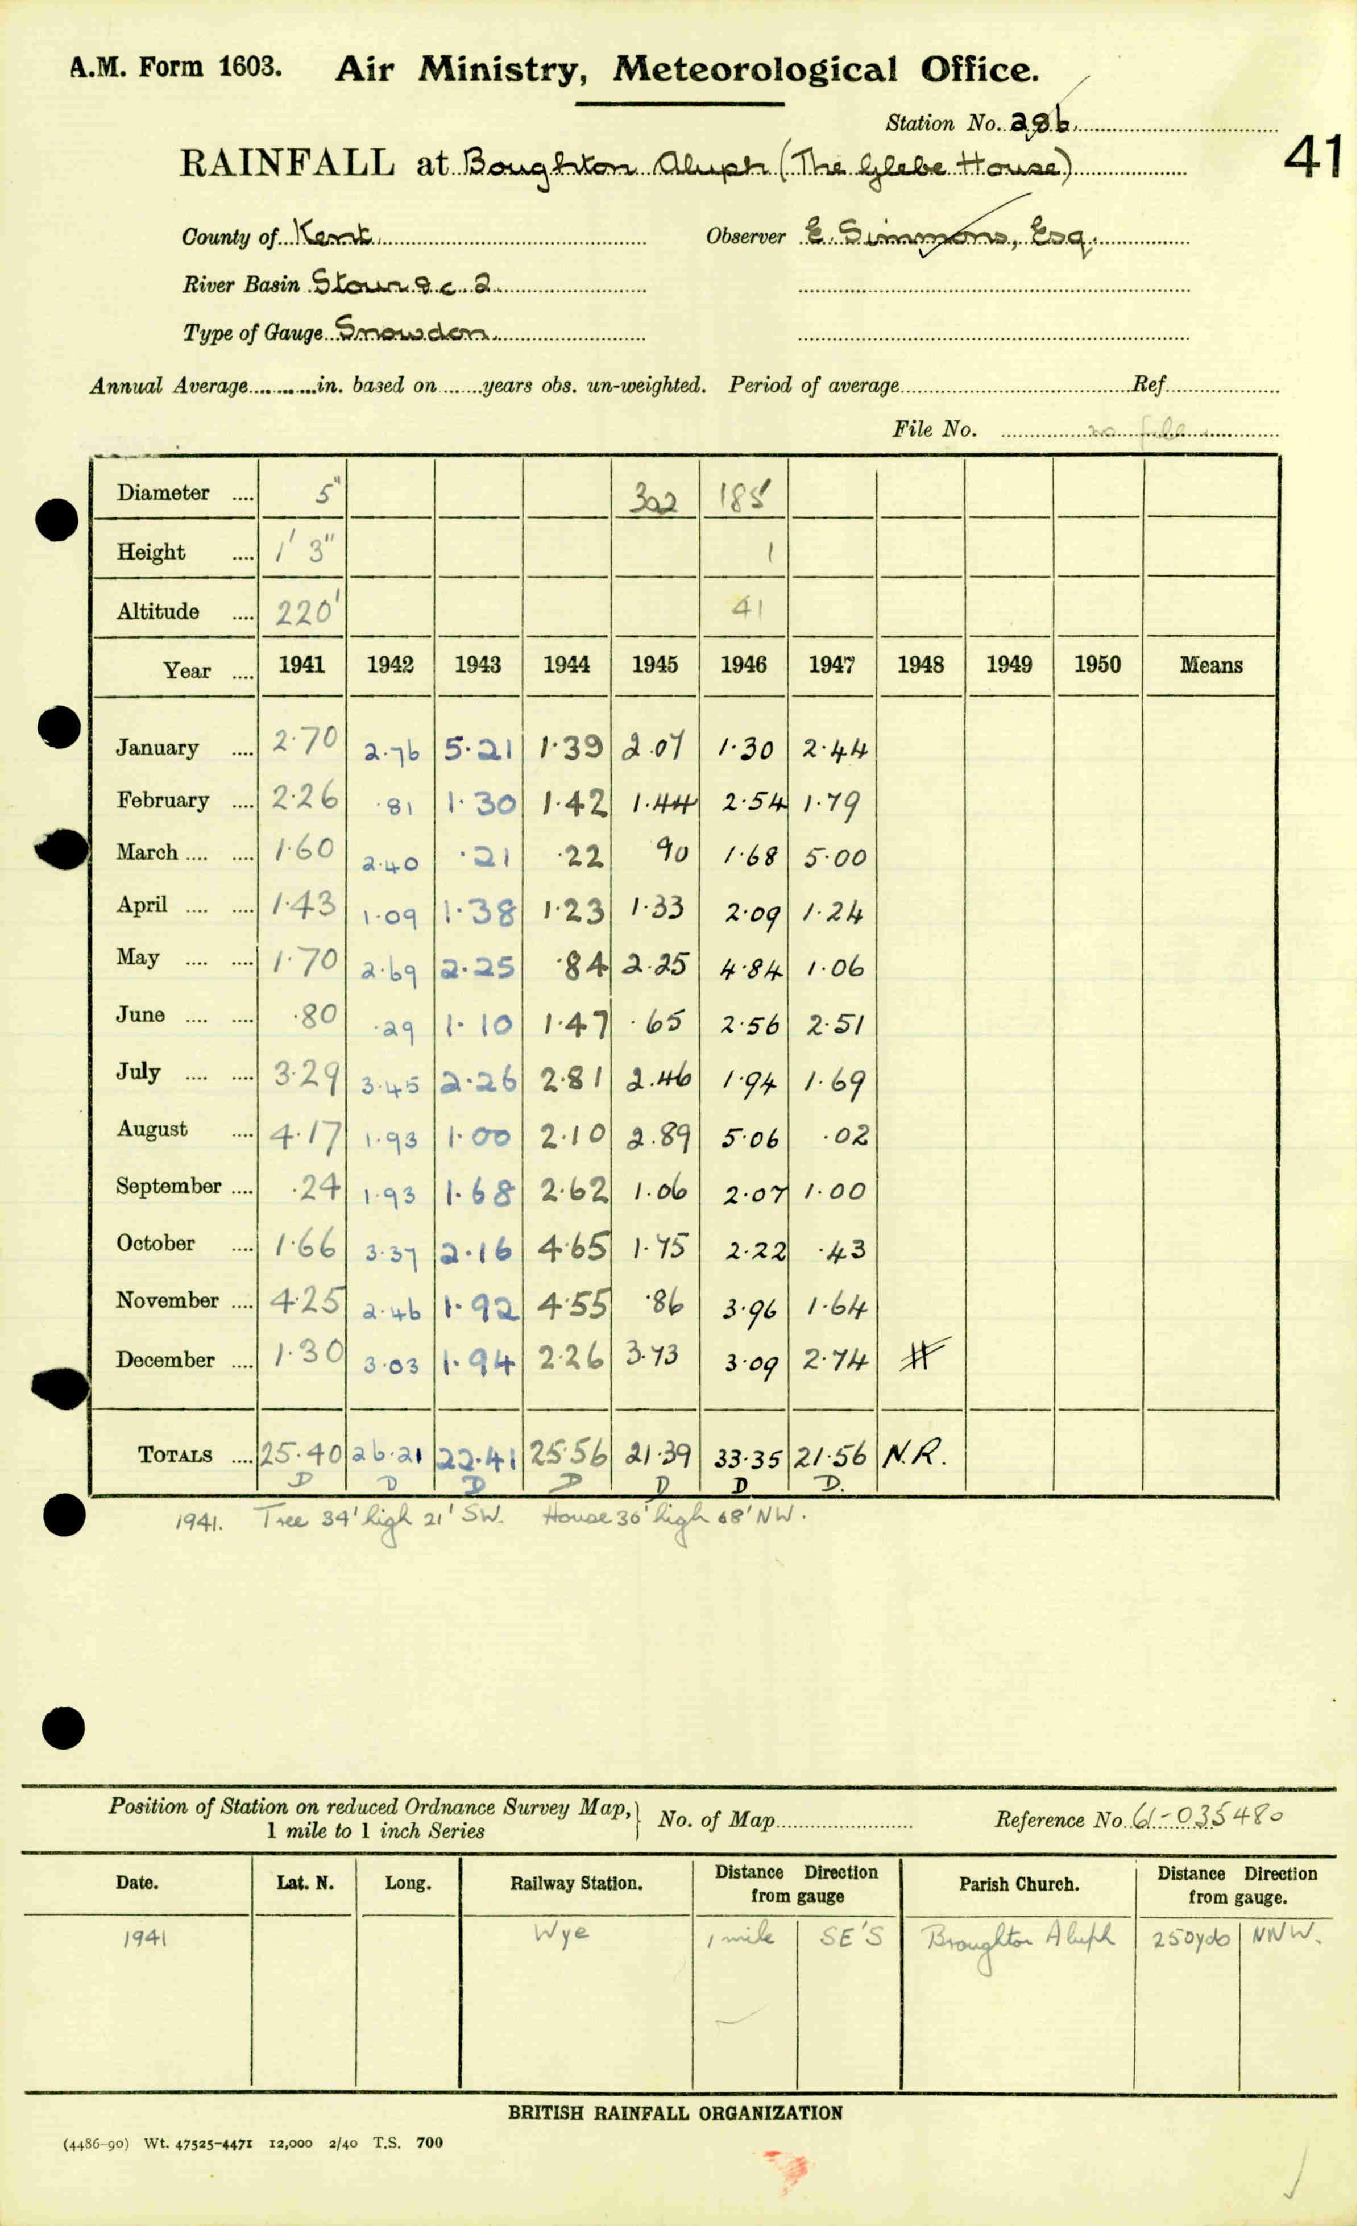 A.M. Form 1603. Air Ministry, Meteorological Office.
Station No. 286
41
RAINFALL at Boughton Aluph (The Glebe House)
County of Kent Observer E. Simmons, Esq.
River Basin Stour & c. 2
Type of Gauge Snowdon
Annual Average in. based on years obs. un-weighted. Period of average Ref
File No. no file
Diameter 5" 302 185
Height 1' 3" 1
Altitude 220' 41
Year 1941 1942 1943 1944 1945 1946 1947 1948 1949 1950 Means
January 2.70 2.76 5.21 1.39 2.07 1.30 2.44
February 2.26 .81 1.30 1.42 1.44 2.54 1.79
March 1.60 2.40 .21 .22 90 1.68 5.00
April 1.43 1.09 1.38 1.23 1.33 2.09 1.24
May 1.70 2.69 2.25 .84 2.25 4.84 1.06
June .80 .29 1.10 1.47 .65 2.56 2.51
July 3.29 3.45 2.26 2.81 2.46 1.94 1.69
August 4.17 1.93 1.00 2.10 2.89 5.06 .02
September .24 1.93 1.68 2.62 1.06 2.07 1.00
October 1.66 3.37 2.16 4.65 1.75 2.22 .43
November 4.25 2.46 1.92 4.55 .86 3.96 1.64
December 1.30 3.03 1.94 2.26 3.73 3.09 2.74
TOTALS 25.40 26.21 22.41 25.56 21.39 33.35 21.56 N.R.
D D D D D D D.
1941. Tree 34' high 21' SW. House 30' high 68' NW.
Position of Station on reduced Ordnance Survey Map, 1 mile to 1 inch Series } No. of Map Reference No. 61-035480
Date. Lat. N. Long. Railway Station. Distance Direction from gauge Parish Church. Distance Direction from gauge.
1941 Wye 1 mile SE'S Broughton Aluph 250yds NNW.
BRITISH RAINFALL ORGANIZATION
(4486-90) Wt. 47525-4471 12,000 2/40 T.S. 700